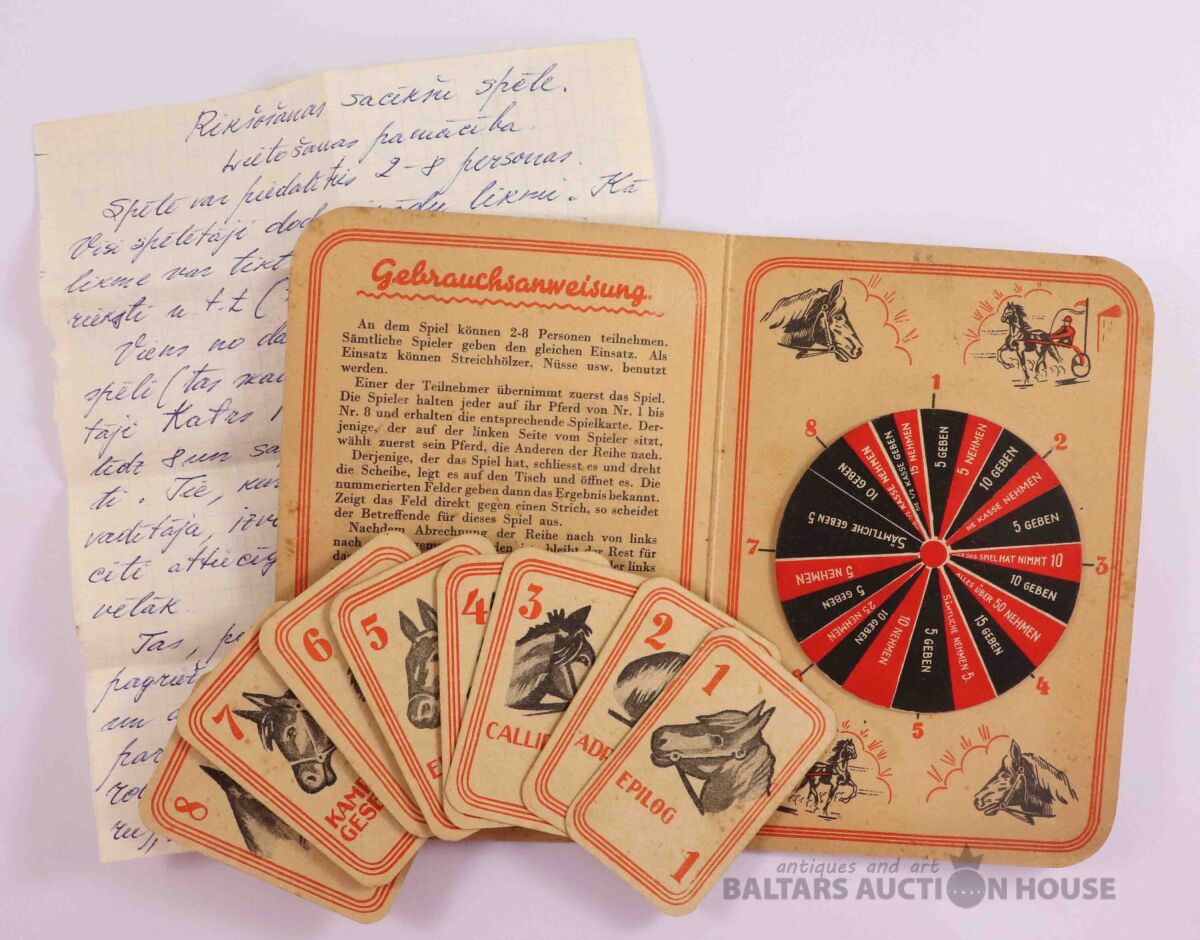 Rikšošanas sacīkšu spēle.
Lietošanas pamācība.
Spēlē var piedalīties 2-8 personas.
Visi spēlētāji dod likmi. Kā
likme var tikt
rieksti u.t.t (
Viens no da
spēli (tas
tāji Katrs
līdz 8 un sa
ti. Tie,
vadītāja, izv
citi attiecīg
vēlāk
Tas
pagriež
un
par
Gebrauchsanweisung.
An dem Spiel können 2-8 Personen teilnehmen.
Sämtliche Spieler geben den gleichen Einsatz. Als
Einsatz können Streichhölzer, Nüsse usw. benutzt
werden.
Einer der Teilnehmer übernimmt zuerst das Spiel.
Die Spieler halten jeder auf ihr Pferd von Nr. 1 bis
Nr. 8 und erhalten die entsprechende Spielkarte. Der-
jenige, der auf der linken Seite vom Spieler sitzt,
wählt zuerst sein Pferd, die Anderen der Reihe nach.
Derjenige, der das Spiel hat, schliesst es und dreht
die Scheibe, legt es auf den Tisch und öffnet es. Die
nummerierten Felder geben dann das Ergebnis bekannt.
Zeigt das Feld direkt gegen einen Strich, so scheidet
der Betreffende für dieses Spiel aus.
Nachdem Abrechnung der Reihe nach von links
nach bleibt der Rest für
der links
1
2
3
4
5
6
7
8
5 GEBEN
5 NEHMEN
10 GEBEN
DIE KASSE NEHMEN
5 GEBEN
WER DAS SPIEL HAT NIMMT 10
10 GEBEN
ALLES ÜBER 50 NEHMEN
15 GEBEN
SÄMTLICHE NEHMEN 5
5 GEBEN
10 NEHMEN
10 GEBEN
25 NEHMEN
5 GEBEN
5 NEHMEN
SÄMTLICHE GEBEN 5
10 GEBEN
DIE 1/2 KASSE NEHMEN
DIE 1/2 KASSE GEBEN
15 NEHMEN
8
7
KAMP
GESE
6
5
E
4
3
CALLI
2
ADR
1
EPILOG
1
antiques and art
BALTARS AUCTION HOUSE